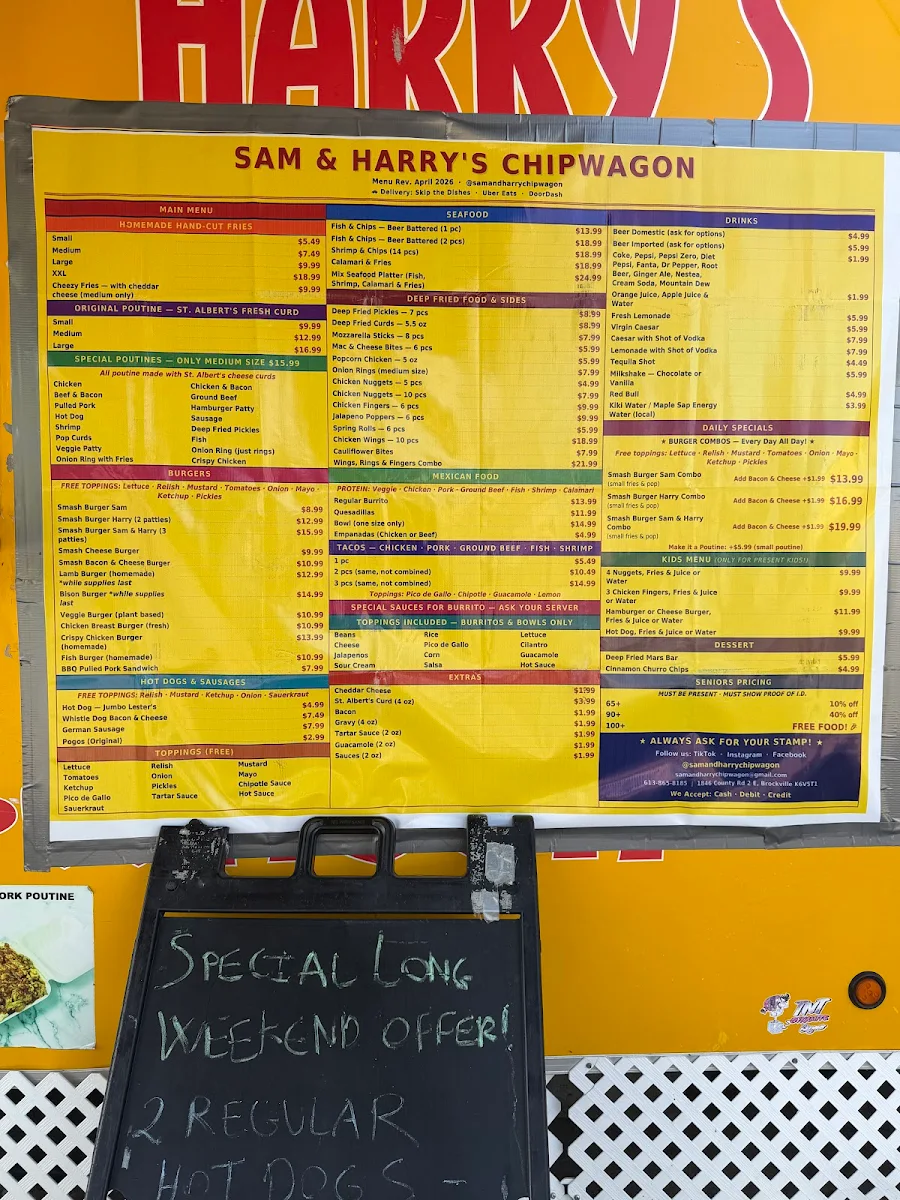 HARRY'S
SAM & HARRY'S CHIPWAGON
Menu Rev. April 2026 · @samandharrychipwagon
Delivery: Skip the Dishes · Uber Eats · DoorDash
MAIN MENU
HOMEMADE HAND-CUT FRIES
Small $5.49
Medium $7.49
Large $9.99
XXL $18.99
Cheezy Fries — with cheddar $9.99
cheese (medium only)
ORIGINAL POUTINE — ST. ALBERT'S FRESH CURD
Small $9.99
Medium $12.99
Large $16.99
SPECIAL POUTINES — ONLY MEDIUM SIZE $15.99
All poutine made with St. Albert's cheese curds
Chicken Chicken & Bacon
Beef & Bacon Ground Beef
Pulled Pork Hamburger Patty
Hot Dog Sausage
Shrimp Deep Fried Pickles
Pop Curds Fish
Veggie Patty Onion Ring (just rings)
Onion Ring with Fries Crispy Chicken
BURGERS
FREE TOPPINGS: Lettuce · Relish · Mustard · Tomatoes · Onion · Mayo ·
Ketchup · Pickles
Smash Burger Sam $8.99
Smash Burger Harry (2 patties) $12.99
Smash Burger Sam & Harry (3 $15.99
patties)
Smash Cheese Burger $9.99
Smash Bacon & Cheese Burger $10.99
Lamb Burger (homemade) $12.99
*while supplies last
Bison Burger *while supplies $14.99
last
Veggie Burger (plant based) $10.99
Chicken Breast Burger (fresh) $10.99
Crispy Chicken Burger $13.99
(homemade)
Fish Burger (homemade) $10.99
BBQ Pulled Pork Sandwich $7.99
HOT DOGS & SAUSAGES
FREE TOPPINGS: Relish · Mustard · Ketchup · Onion · Sauerkraut
Hot Dog — Jumbo Lester's $4.99
Whistle Dog Bacon & Cheese $7.49
German Sausage $7.99
Pogos (Original) $2.99
TOPPINGS (FREE)
Lettuce Relish Mustard
Tomatoes Onion Mayo
Ketchup Pickles Chipotle Sauce
Pico de Gallo Tartar Sauce Hot Sauce
Sauerkraut
SEAFOOD
Fish & Chips — Beer Battered (1 pc) $13.99
Fish & Chips — Beer Battered (2 pcs) $18.99
Shrimp & Chips (14 pcs) $18.99
Calamari & Fries $18.99
Mix Seafood Platter (Fish, $24.99
Shrimp, Calamari & Fries)
DEEP FRIED FOOD & SIDES
Deep Fried Pickles — 7 pcs $8.99
Deep Fried Curds — 5.5 oz $8.99
Mozzarella Sticks — 8 pcs $7.99
Mac & Cheese Bites — 6 pcs $5.99
Popcorn Chicken — 5 oz $5.99
Onion Rings (medium size) $7.99
Chicken Nuggets — 5 pcs $4.99
Chicken Nuggets — 10 pcs $7.99
Chicken Fingers — 6 pcs $9.99
Jalapeno Poppers — 6 pcs $9.99
Spring Rolls — 6 pcs $5.99
Chicken Wings — 10 pcs $18.99
Cauliflower Bites $7.99
Wings, Rings & Fingers Combo $21.99
MEXICAN FOOD
PROTEIN: Veggie · Chicken · Pork · Ground Beef · Fish · Shrimp · Calamari
Regular Burrito $13.99
Quesadillas $11.99
Bowl (one size only) $14.99
Empanadas (Chicken or Beef) $4.99
TACOS — CHICKEN · PORK · GROUND BEEF · FISH · SHRIMP
1 pc $5.49
2 pcs (same, not combined) $10.49
3 pcs (same, not combined) $14.99
Toppings: Pico de Gallo · Chipotle · Guacamole · Lemon
SPECIAL SAUCES FOR BURRITO — ASK YOUR SERVER
TOPPINGS INCLUDED — BURRITOS & BOWLS ONLY
Beans Rice Lettuce
Cheese Pico de Gallo Cilantro
Jalapenos Corn Guacamole
Sour Cream Salsa Hot Sauce
EXTRAS
Cheddar Cheese $1.99
St. Albert's Curd (4 oz) $3.99
Bacon $1.99
Gravy (4 oz) $1.99
Tartar Sauce (2 oz) $1.99
Guacamole (2 oz) $1.99
Sauces (2 oz) $1.99
DRINKS
Beer Domestic (ask for options) $4.99
Beer Imported (ask for options) $5.99
Coke, Pepsi, Pepsi Zero, Diet $1.99
Pepsi, Fanta, Dr Pepper, Root
Beer, Ginger Ale, Nestea,
Cream Soda, Mountain Dew
Orange Juice, Apple Juice & $1.99
Water
Fresh Lemonade $5.99
Virgin Caesar $5.99
Caesar with Shot of Vodka $7.99
Lemonade with Shot of Vodka $7.99
Tequila Shot $4.99
Milkshake — Chocolate or $5.99
Vanilla
Red Bull $4.99
Kiki Water / Maple Sap Energy $3.99
Water (local)
DAILY SPECIALS
★ BURGER COMBOS — Every Day All Day! ★
Free toppings: Lettuce · Relish · Mustard · Tomatoes · Onion · Mayo ·
Ketchup · Pickles
Smash Burger Sam Combo Add Bacon & Cheese +$1.99 $13.99
(small fries & pop)
Smash Burger Harry Combo Add Bacon & Cheese +$1.99 $16.99
(small fries & pop)
Smash Burger Sam & Harry Add Bacon & Cheese +$1.99 $19.99
Combo
(small fries & pop)
Make it a Poutine: +$5.99 (small poutine)
KIDS MENU (ONLY FOR PRESENT KIDS!)
4 Nuggets, Fries & Juice or $9.99
Water
3 Chicken Fingers, Fries & Juice $9.99
or Water
Hamburger or Cheese Burger, $11.99
Fries & Juice or Water
Hot Dog, Fries & Juice or Water $9.99
DESSERT
Deep Fried Mars Bar $5.99
Cinnamon Churro Chips $4.99
SENIORS PRICING
MUST BE PRESENT · MUST SHOW PROOF OF I.D.
65+ 10% off
90+ 40% off
100+ FREE FOOD!
★ ALWAYS ASK FOR YOUR STAMP! ★
Follow us: TikTok · Instagram · Facebook
@samandharrychipwagon
samandharrychipwagon@gmail.com
613-865-8185 | 1846 County Rd 2 E, Brockville K6V5T1
We Accept: Cash · Debit · Credit
ORK POUTINE
SPECIAL LONG
WEEKEND OFFER!
2 REGULAR
HOT DOGS —
TNT